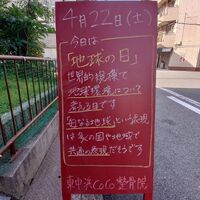 4月22日(土)
今日は
「地球の日」
世界的規模で
地球環境について
考える日です
「母なる地球」という表現
は多くの国や地域で
共通の表現だそうです
東中浜CoCo整骨院